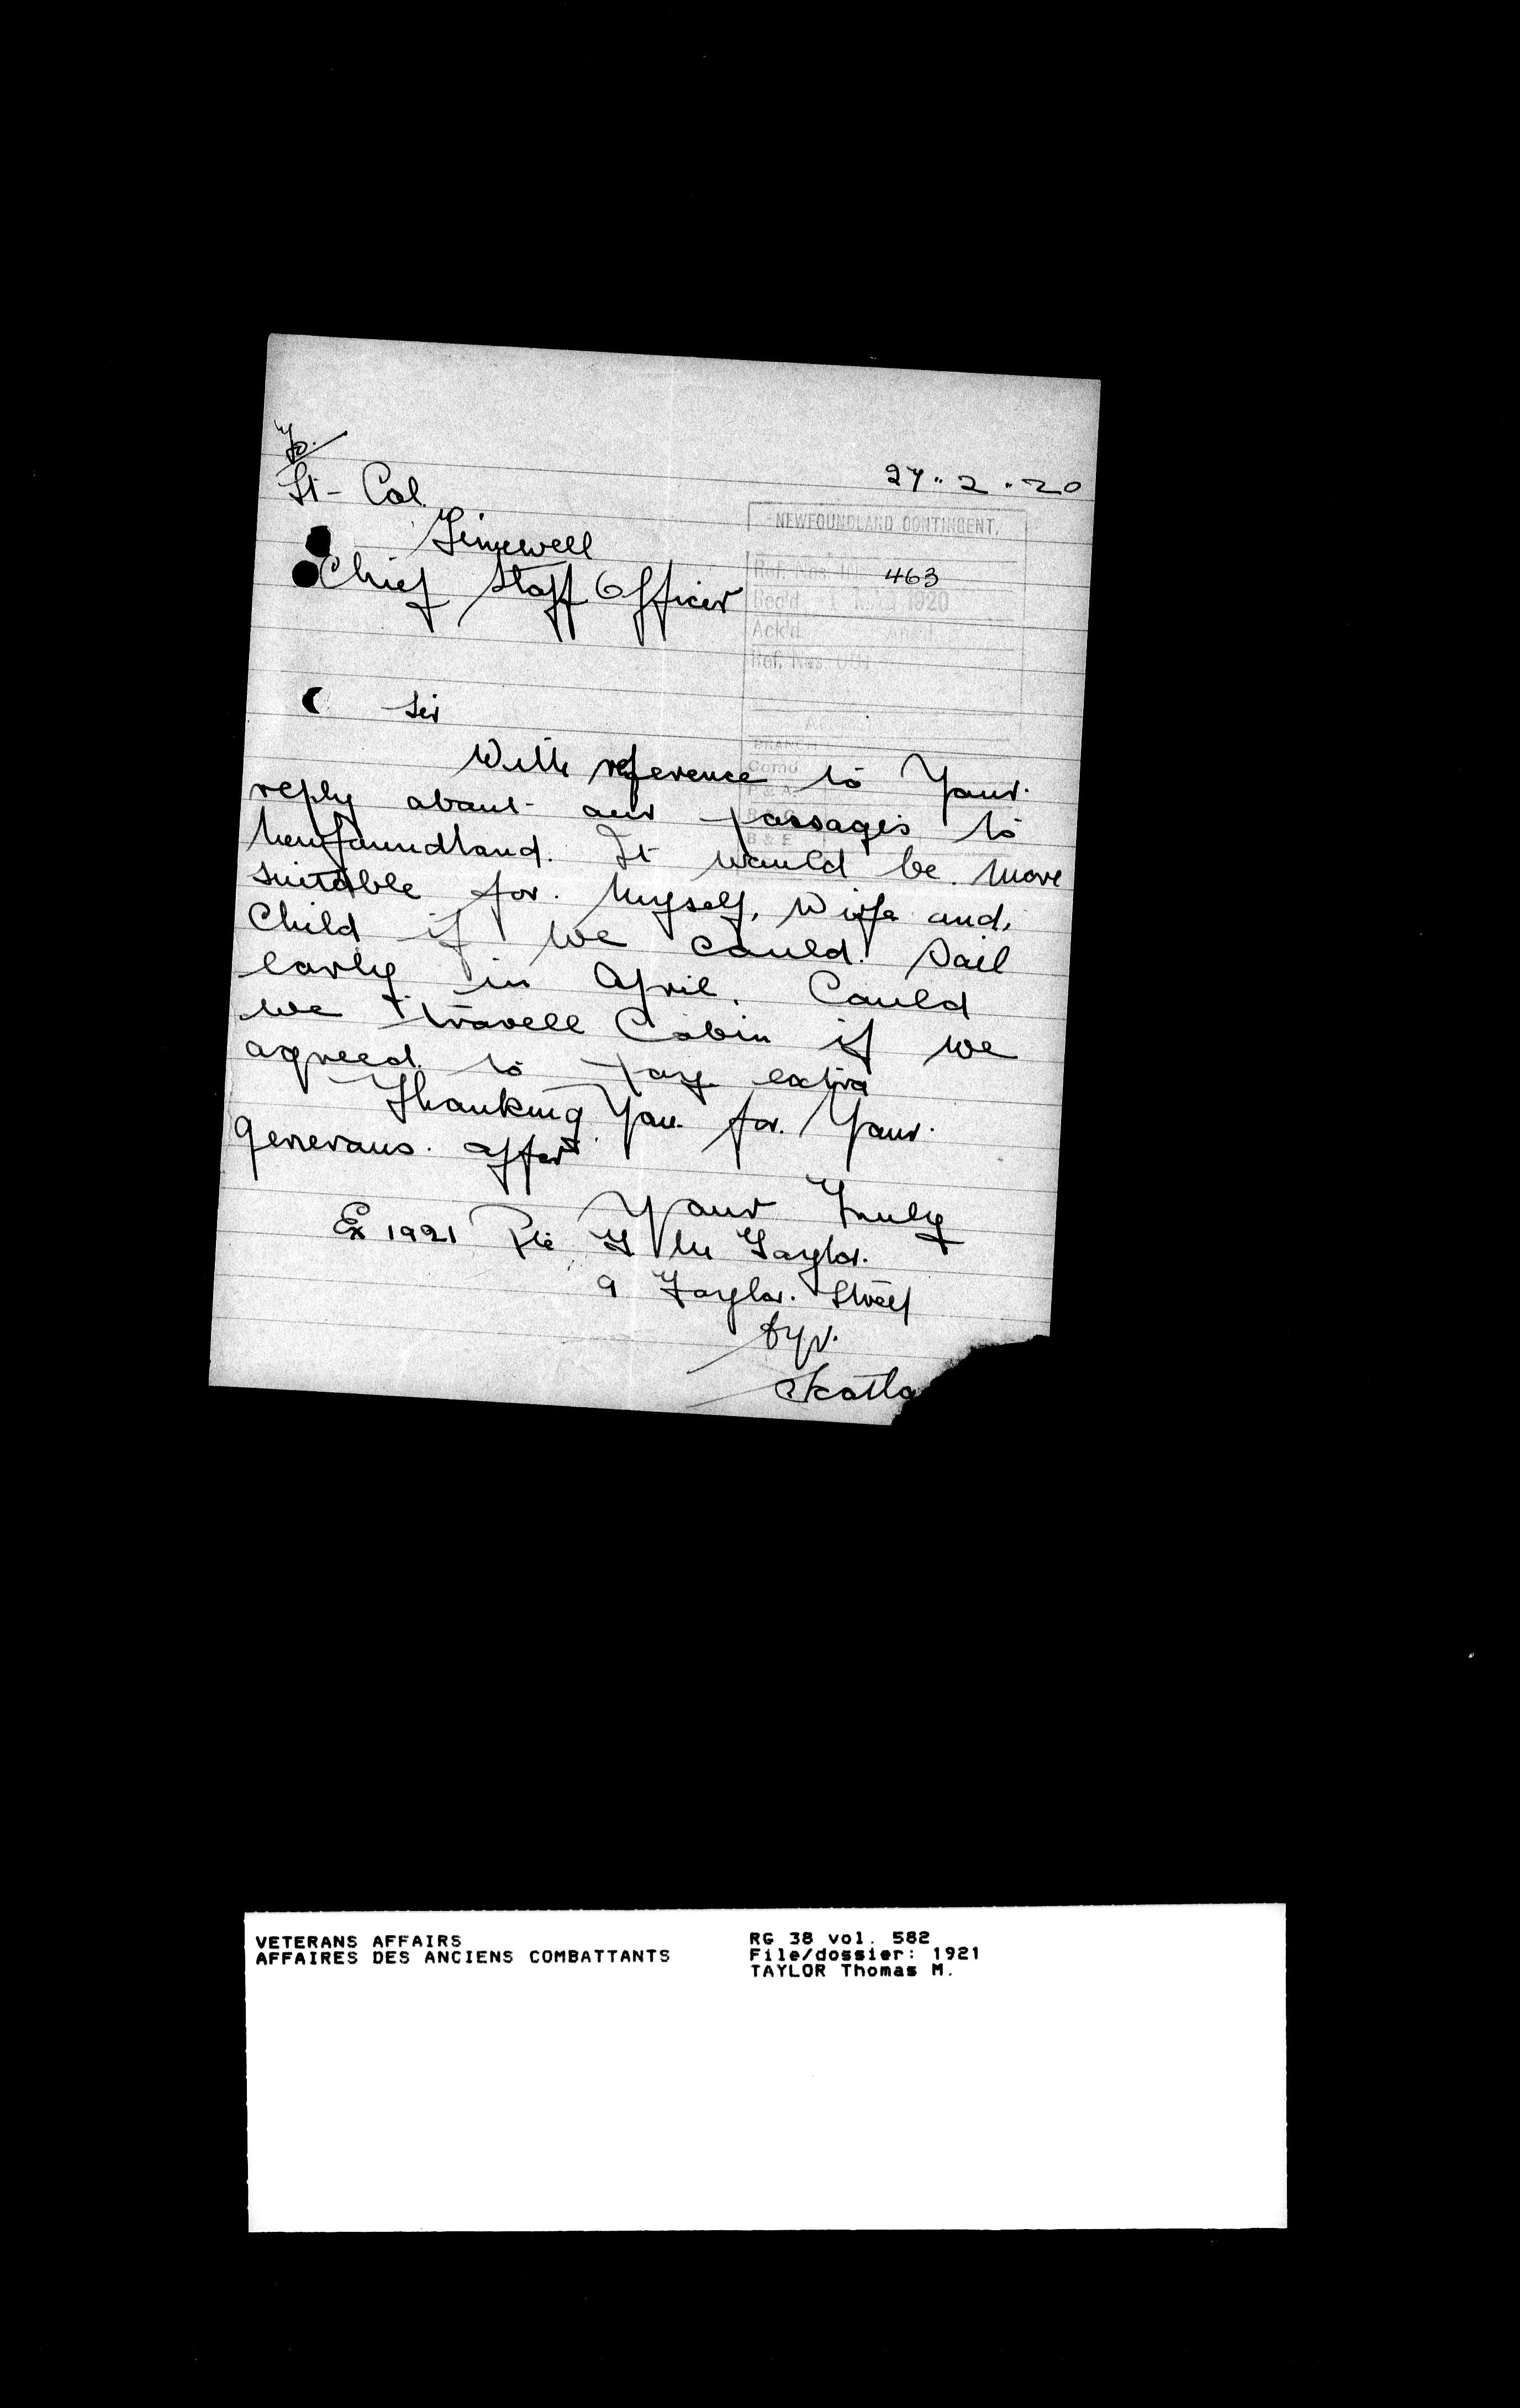 To.
27..2..20
Lt-Col.
Timewell
Chief Staff Officer
NEWFOUNDLAND CONTINGENT.
Ref. Nos. In 463
Rec'd -1 MAR 1920
Ack'd Ans'd
Ref. Nos. Out
BRANCH
Comd
P & A
B & E
Sir
With reference to Your
reply about our passages to
Newfoundland. It would be more
suitable for Myself, Wife and,
Child if we could Sail
early in April. Could
we travell Cabin if we
agreed to pay extra
Thanking You for Your
generous offer
Your Truly
Ex 1921 Pte T M Taylor.
9 Taylor. Street
Ayr.
Scotla
VETERANS AFFAIRS
AFFAIRES DES ANCIENS COMBATTANTS
RG 38 vol. 582
File/dossier: 1921
TAYLOR Thomas M.